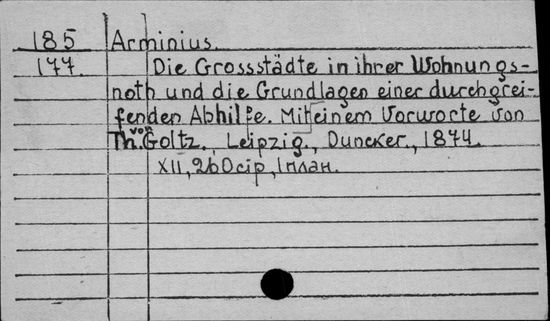 185 Arminius.
177. Die Grossstädte in ihrer Wohnungs-
noth und die Grundlagen einer durchgrei-
fenden Abhilfe. Mit einem Vorworte von
Th. von Goltz., Leipzig., Duncker., 1874.
XII, 260 cip, 1 план.